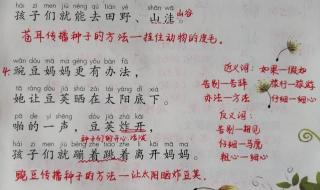 hái zi men jiù néng qù tián yě shān wā
孩子们就能去田野、山洼。山谷
苍耳传播种子的方法—挂住动物的皮毛。
wān dòu mā ma gèng yǒu bàn fǎ
4. 豌豆妈妈更有办法,
tā ràng dòu jiá shài zài tài yáng dǐ xià
她让豆荚晒在太阳底下。
pā de yì shēng dòu jiá zhà kāi
啪的一声,豆荚炸开,
种子们的开心、活泼
hái zi men jiù bèng zhe tiào zhe lí kāi mā ma
孩子们就蹦着跳着离开妈妈。
豌豆传播种子的方法—让太阳晒炸豆荚。
近义词:如果—假如
告别—告辞 旅行—旅游
办法—方法 仔细—细心
反义词:
告别—相见
仔细—马虎
粗心—细心